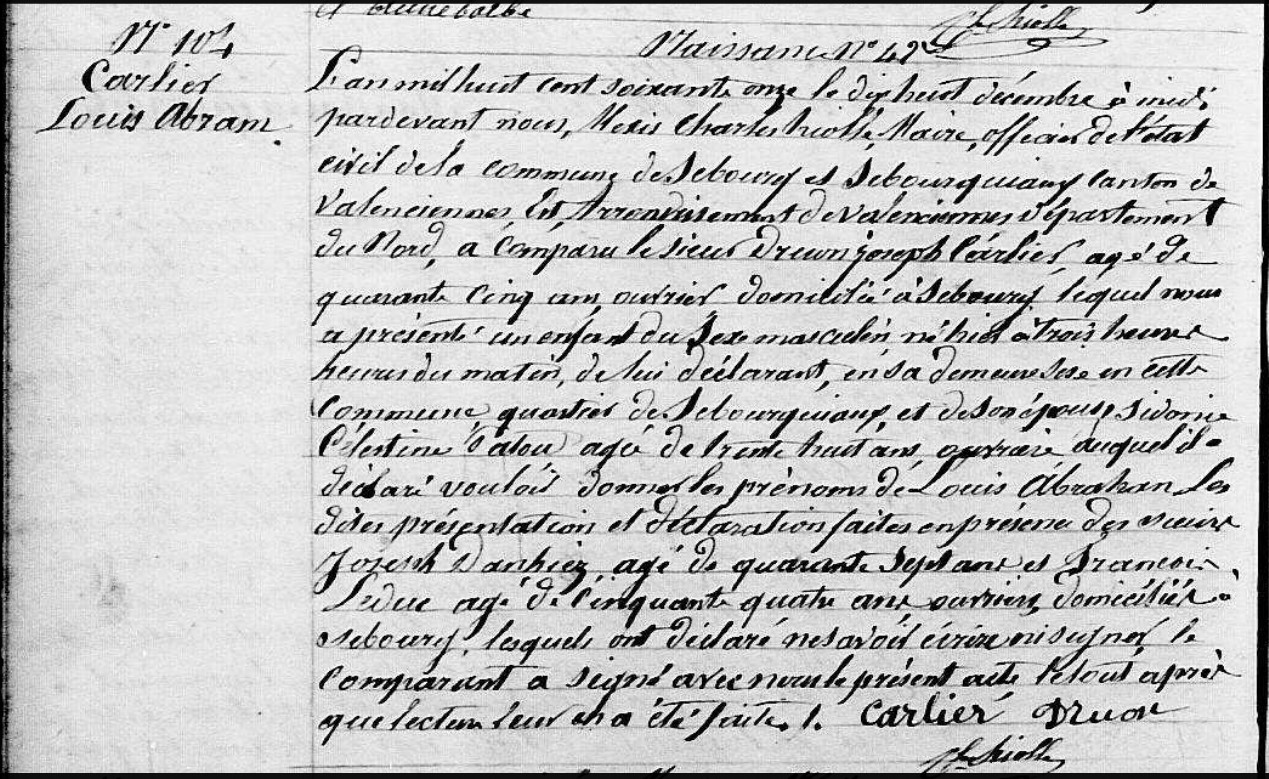 N° 104
Carlier
Louis Abram
Naissance N° 42
L'an mil huit cent soixante onze le dix huit décembre à midi
pardevant nous, Alexis Charles hiolle, Maire, officier de l'état
civil de la commune de Sebourg et Sebourquiaux canton de
Valenciennes Est, Arrondissement de Valenciennes département
du Nord, a comparu le sieur Druon joseph Carlier, agé de
quarante cinq ans, ouvrier domicilié à Sebourg, lequel nous
a présenté un enfant du sexe masculin né hier à trois heures
heures du matin, de lui déclarant, en sa demeure sise en cette
commune quartier de Sebourquiaux, et de son épouse Sidonie
Célestine agée de trente huit ans, ouvrière auquel il a
déclaré vouloir donner les prénoms de Louis Abrahan Les
dites présentation et déclaration faites en présence des sieurs
Joseph Danhiez agé de quarante sept ans et François
Leduc agé de cinquante quatre ans ouvriers, domiciliés à
Sebourg, lesquels ont déclaré ne savoir écrire ni signer le
comparant a signé avec nous le présent acte le tout après
que lecture leur en a été faite. /. Carlier Druon
hiolle